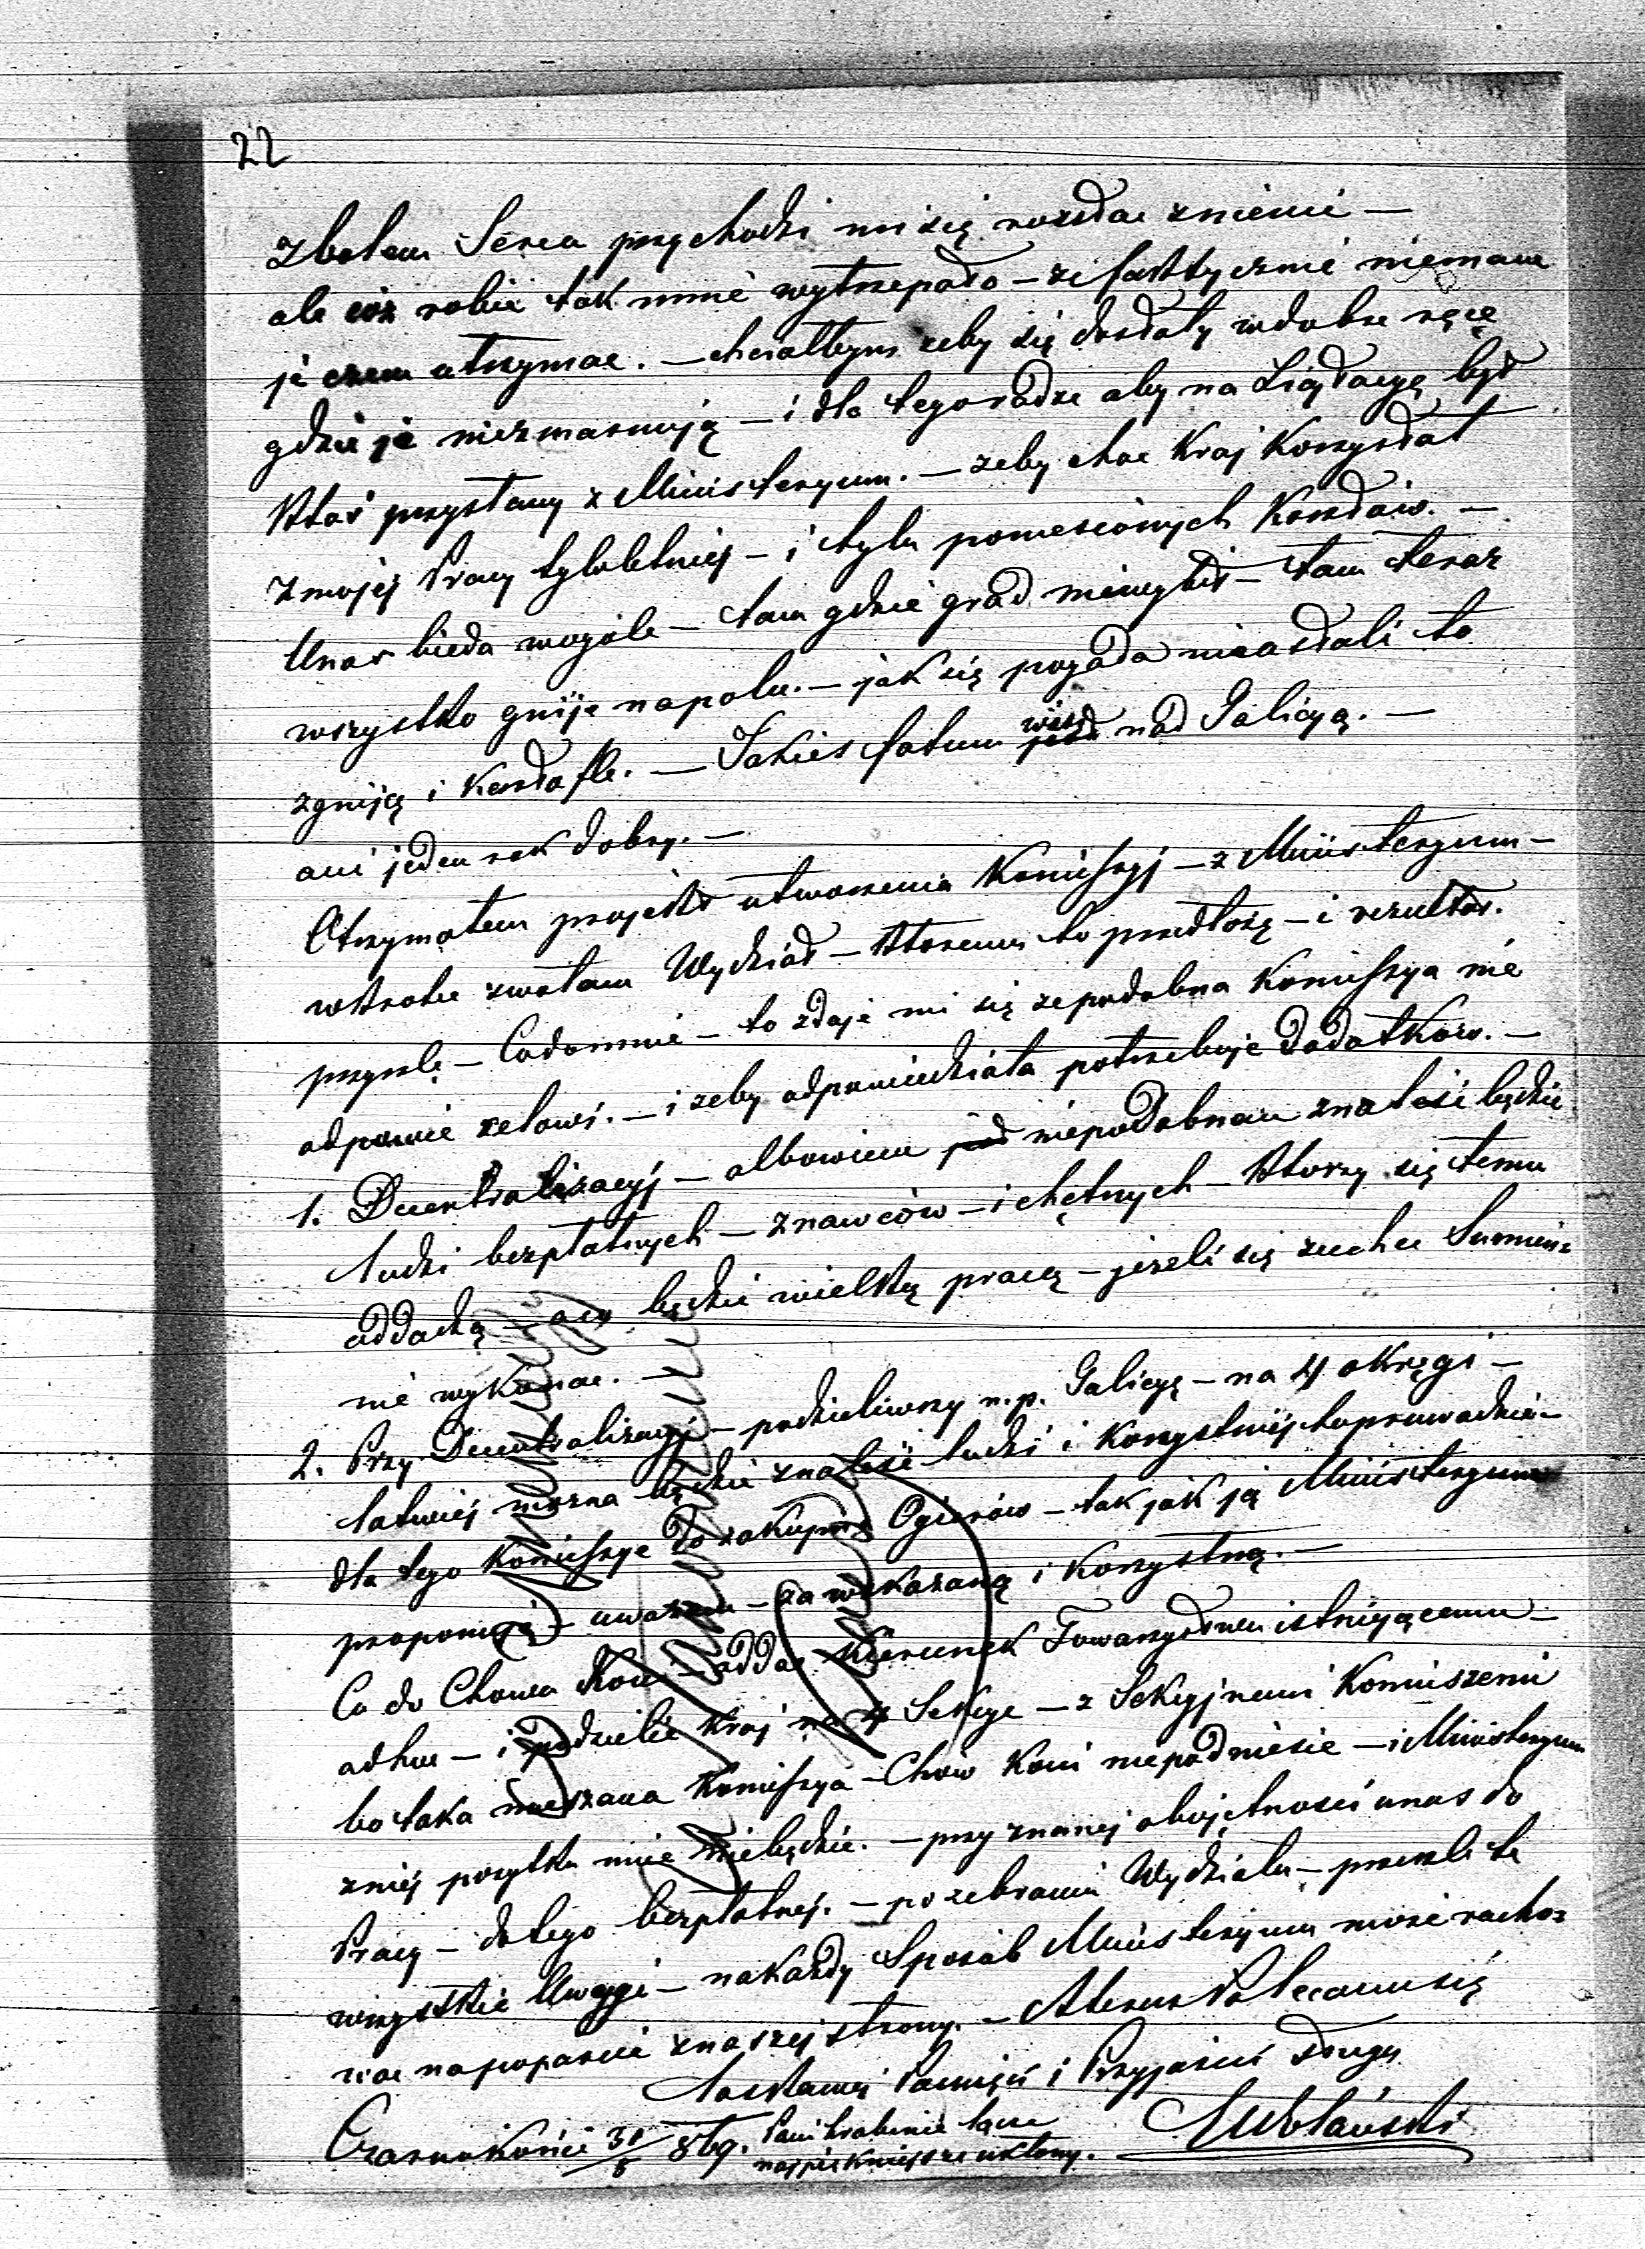 22
Zbolem Serca przychodzi mi się rozstac zniemi —
ale coz robic tak mnie wytrzepało — ze faktycznie niemam
je czem utrzymac. — chciałbym zeby się dostały wdobre ręcę
gdzie je niezmarnują — i dla tego radze aby na Licytacyę był
Ktos przysłany z Ministeryum. — zeby choc Kraj Korzystał
Zmojej Pracy tyloletniej — i tylu poniesionych Kosztów. —
Unas bieda wogóle — tam gdzie grad niewybił — tam teraz
wszystko gnije napolu. — jak się pogoda nieustali to
zgniją i Kartofle. — Jakies fatum wisi nad Galicyą. —
ani jeden rok dobry. —
Otrzymałem projekt utworzenia Komissyj — z Ministeryum —
wkrotce zwołam Wydział — Ktoremu to przedłożę — i rezultat
przyszlę — Codomnie — to zdaje mi się ze podobna Komissya nie
odpowie celowi. — i zeby odpowiedziała potrzebuje dodatkow. —
1. Decentralizacyj — albowiem niepodobnem znaleść będzie
ludzi bezpłatnych — znawców — i chętnych — Ktorzy się temu
oddadzą — a to będzie wielką pracą — jezeli się zechce Sumien=
nie wykonac. —
2. Przy Decentralizacyj — podzieliwszy n.p. Galicyę — na 4 okręgi —
łatwiej mozna będzie znaleść ludzi i Korzystniej to prowadzić —
dla tego Komissye do zakupna Ogierów — tak jak ją Ministeryum
proponuje — uwazam — za wskazaną i Korzystną. —
Co do Chowu Koni — oddac Kierunek Towarzystwu istniejącemu —
adhoc — i podzielic Kraj na 4 Sekcye — z Sekcyjnemi Komisjami
bo taka mieszana Komissya — Chow Koni niepodniesie — i Ministeryum
zniej pozytku miec niebędzie. — przy znanej obojętnosci unas do
Pracy — do tego bezpłatnej. — po zebraniu Wydziału — przeszle te
wszystkie Uwagi — nakazdy Sposób Ministeryum moze racho=
wac napoparcie znaszej strony. — Ateraz Polecam się
łaskawej Pamięci i Przyjazni Sługa
Czarnokońce 30/8 879. Pani hrabinie łącze
najpiękniejsze ukłony.